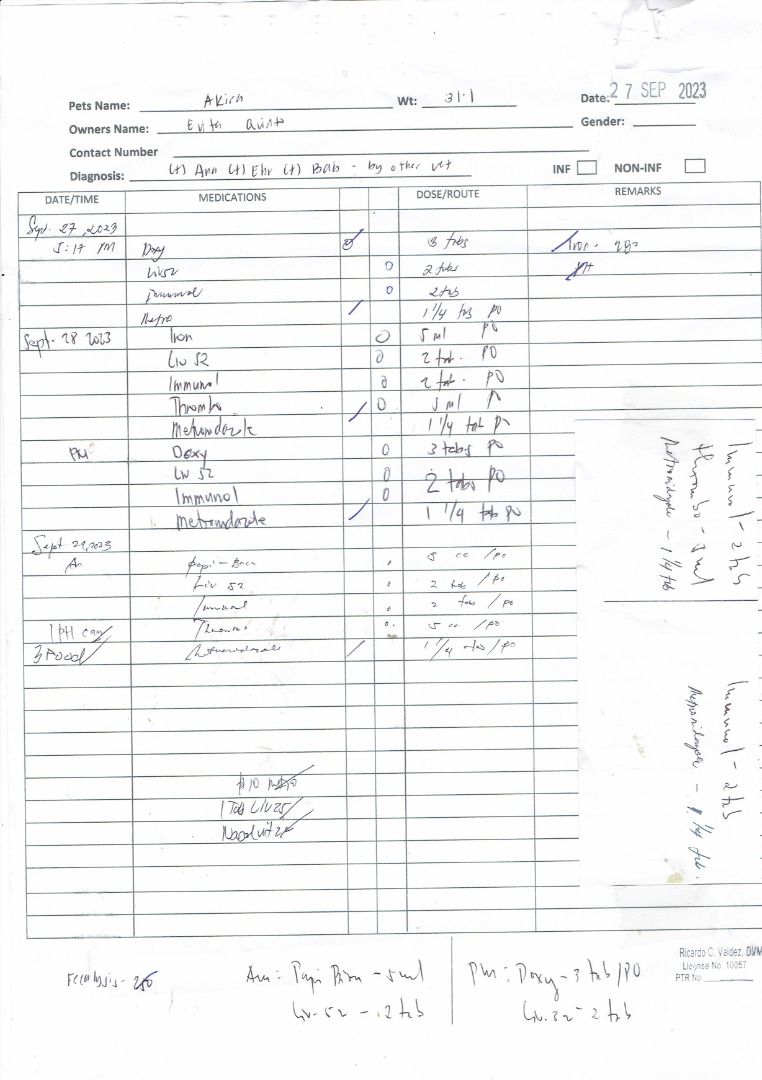 27 SEP 2023
Pets Name: Akira Wt: 31.1 Date:
Owners Name: Evita Quinto Gender:
Contact Number
Diagnosis: (+) Ana (+) Ehr (+) Bab - by other vet INF NON-INF
DATE/TIME MEDICATIONS DOSE/ROUTE REMARKS
Sept. 27, 2023
5:17 PM Doxy 3 tabs Iron - 280
Liv52 2 tabs
Immunol 2 tab
Metro 1 1/4 tab PO
Sept. 28 2023 Iron 5 ml PO
Liv 52 2 tab. PO
Immunol 2 tab. PO
Thrombo 5 ml
Metronidazole 1 1/4 tab
PM Doxy 3 tabs PO
Liv 52
Immunol 2 tabs PO
Metronidazole 1 1/4 tab PO
Sept 29, 2023
Am 5 cc /po
Liv 52 2 tab /po
Immunol 2 tab /po
1 PH can Thrombo 5 cc /po
3 Food Metronidazole 1 1/4 tab/po
1 Tab Liv 25
Immunol - 2 tab
thrombo - 5 ml
Metronidazole - 1 1/4 tab
Immunol - 2 tab
Metronidazole - 1 1/4 tab.
Fecalysis - 250
Am: Papi Iron - 5 ml
Liv-52 - 2 tab
PM: Doxy - 3 tab/PO
Liv.52 - 2 tab
Ricardo C. Valdez, DVM
License No. 10057
PTR No.